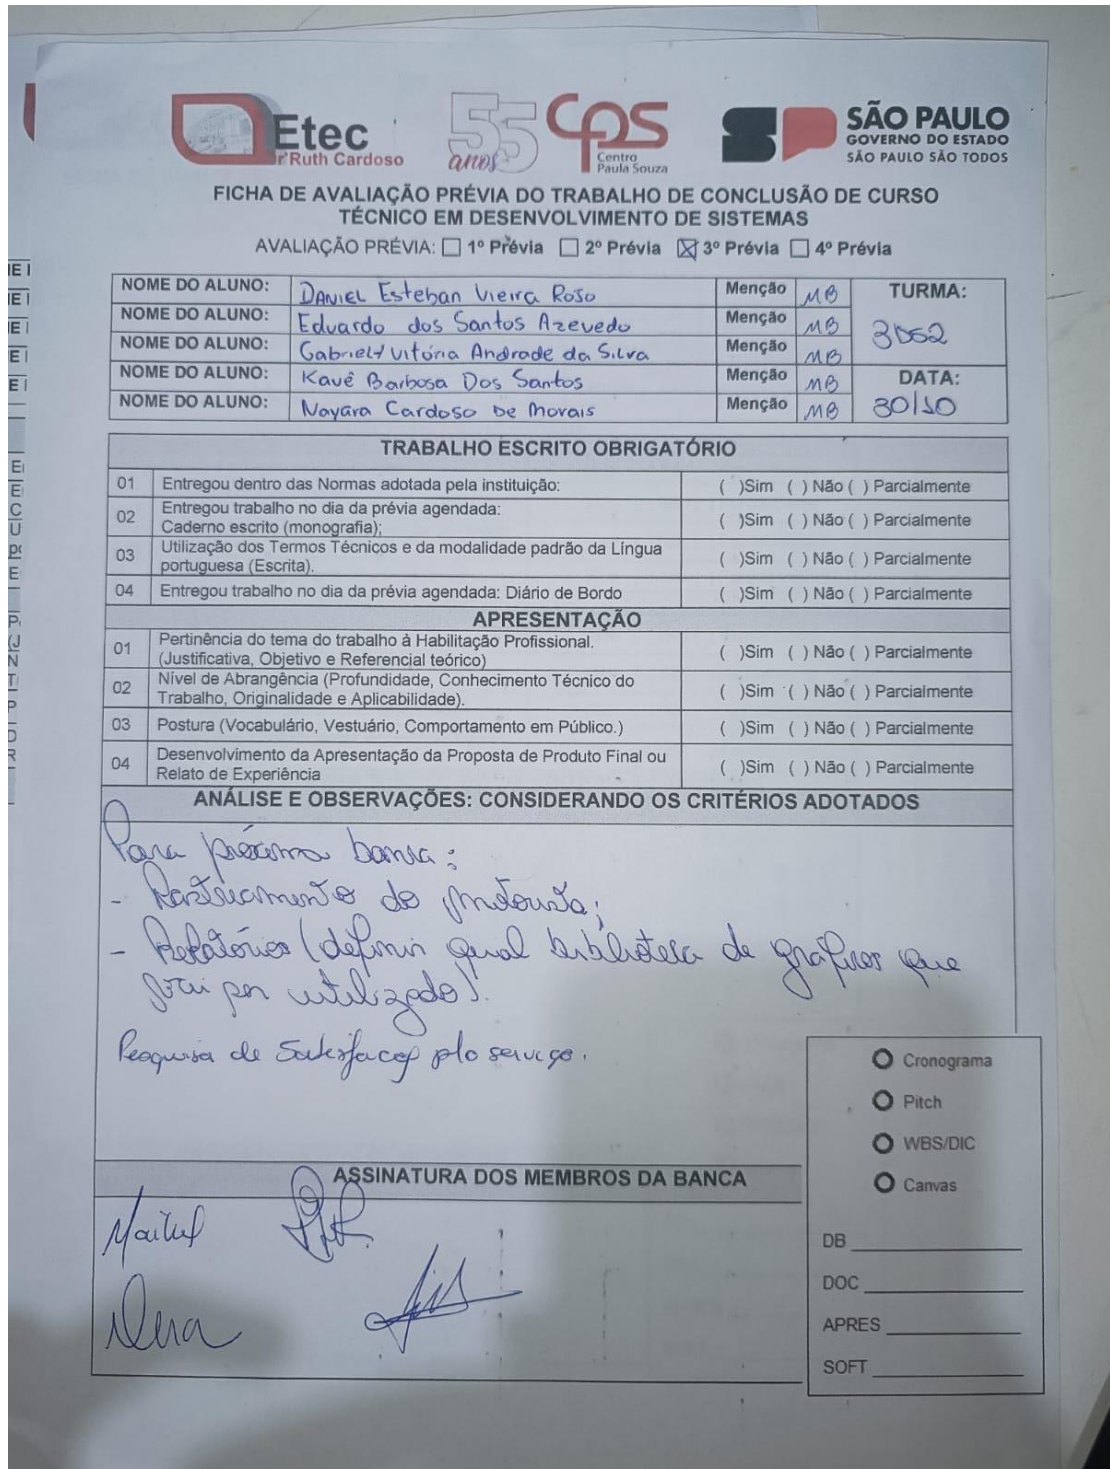 Etec
Drª Ruth Cardoso
55 anos
CPS
Centro
Paula Souza
SP
SÃO PAULO
GOVERNO DO ESTADO
SÃO PAULO SÃO TODOS
FICHA DE AVALIAÇÃO PRÉVIA DO TRABALHO DE CONCLUSÃO DE CURSO
TÉCNICO EM DESENVOLVIMENTO DE SISTEMAS
AVALIAÇÃO PRÉVIA: ☐ 1º Prévia ☐ 2º Prévia ☒ 3º Prévia ☐ 4º Prévia
NOME DO ALUNO: DANIEL Esteban Vieira Roso Menção MB TURMA:
NOME DO ALUNO: Eduardo dos Santos Azevedo Menção MB 3DS2
NOME DO ALUNO: Gabrielly Vitória Andrade da Silva Menção MB
NOME DO ALUNO: Kauê Barbosa Dos Santos Menção MB DATA:
NOME DO ALUNO: Nayara Cardoso De Morais Menção MB 30/10
TRABALHO ESCRITO OBRIGATÓRIO
01 Entregou dentro das Normas adotada pela instituição: ( )Sim ( ) Não ( ) Parcialmente
02 Entregou trabalho no dia da prévia agendada:
Caderno escrito (monografia); ( )Sim ( ) Não ( ) Parcialmente
03 Utilização dos Termos Técnicos e da modalidade padrão da Língua
portuguesa (Escrita). ( )Sim ( ) Não ( ) Parcialmente
04 Entregou trabalho no dia da prévia agendada: Diário de Bordo ( )Sim ( ) Não ( ) Parcialmente
APRESENTAÇÃO
01 Pertinência do tema do trabalho à Habilitação Profissional.
(Justificativa, Objetivo e Referencial teórico) ( )Sim ( ) Não ( ) Parcialmente
02 Nível de Abrangência (Profundidade, Conhecimento Técnico do
Trabalho, Originalidade e Aplicabilidade). ( )Sim ( ) Não ( ) Parcialmente
03 Postura (Vocabulário, Vestuário, Comportamento em Público.) ( )Sim ( ) Não ( ) Parcialmente
04 Desenvolvimento da Apresentação da Proposta de Produto Final ou
Relato de Experiência ( )Sim ( ) Não ( ) Parcialmente
ANÁLISE E OBSERVAÇÕES: CONSIDERANDO OS CRITÉRIOS ADOTADOS
Para próxima banca:
- Rastreamento do motorista;
- Relatórios (definir qual biblioteca de gráficos que
vai ser utilizado).
Pesquisa de Satisfação plo serviço.
Cronograma
Pitch
WBS/DIC
Canvas
DB
DOC
APRES
SOFT
ASSINATURA DOS MEMBROS DA BANCA